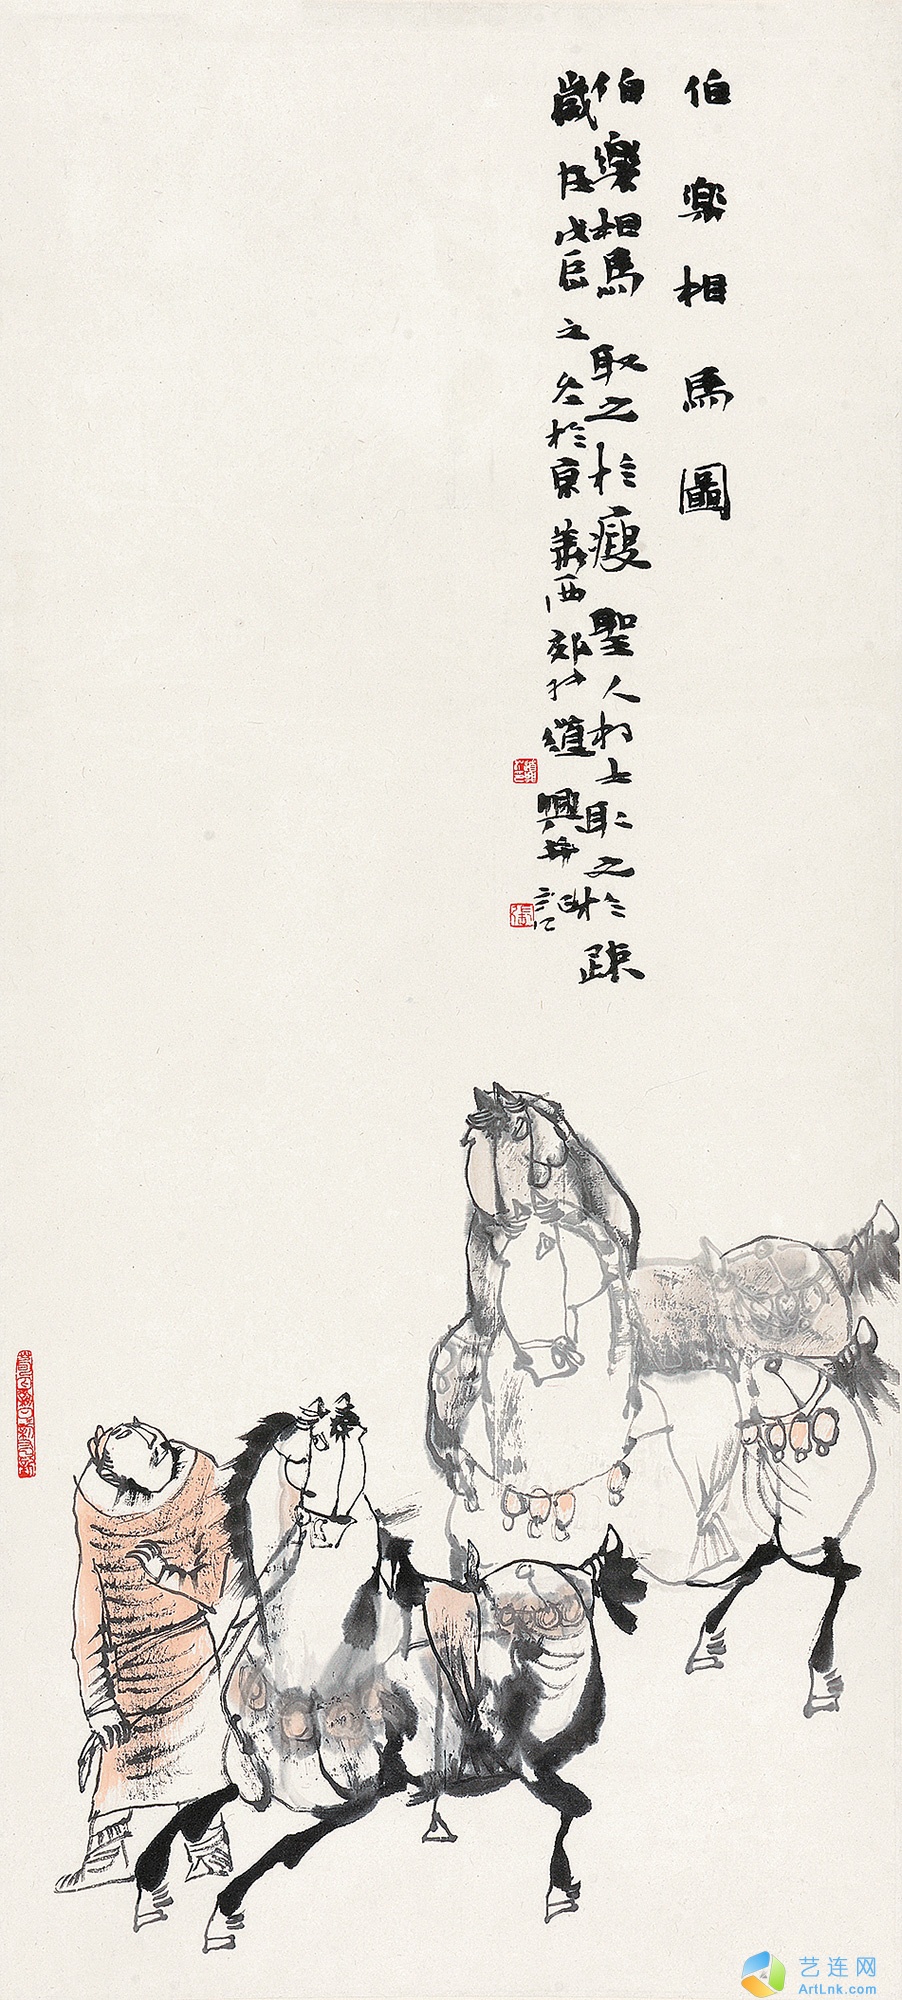 伯樂相馬圖
伯樂相馬取之於瘦聖人相士取之於疎
歲在戊辰之冬於京華西郊道興並記
艺连网
ArtLnk.com